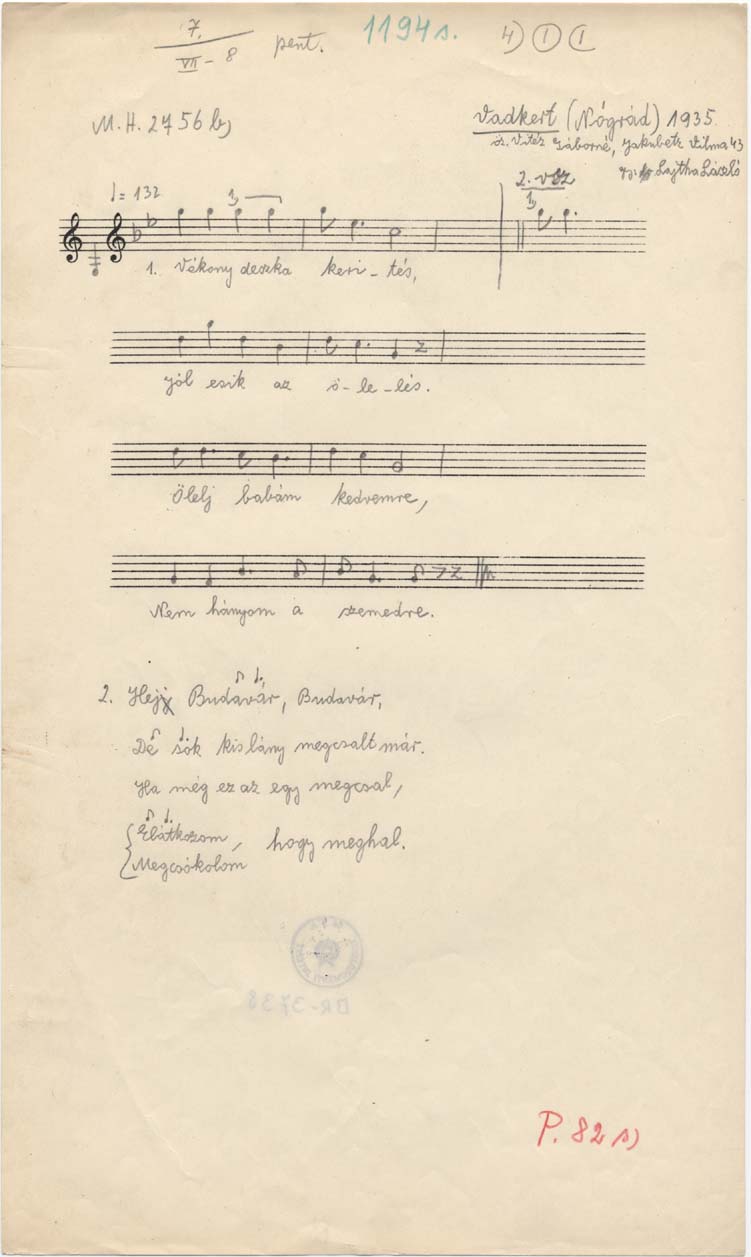 7. pent. 1194 s. 4) 1 1
VII - 8
M. H. 2756 b)
Vadkert (Nógrád) 1935
öz. Vitéz Gáborné, Jakubetz Vilma 43
Lajtha László
♩ = 132
2. vsz
1. Vékony deszka keri-tés,
Jól esik az ö-le-lés.
Ölelj babám kedvemre,
Nem hányom a szemedre.
2. Hej Budavár, Budavár,
De sok kislány megcsalt már.
Ha még ez az egy megcsal,
Elátkozom, hogy meghal.
Megcsókolom
BR-3738
P. 82 s)